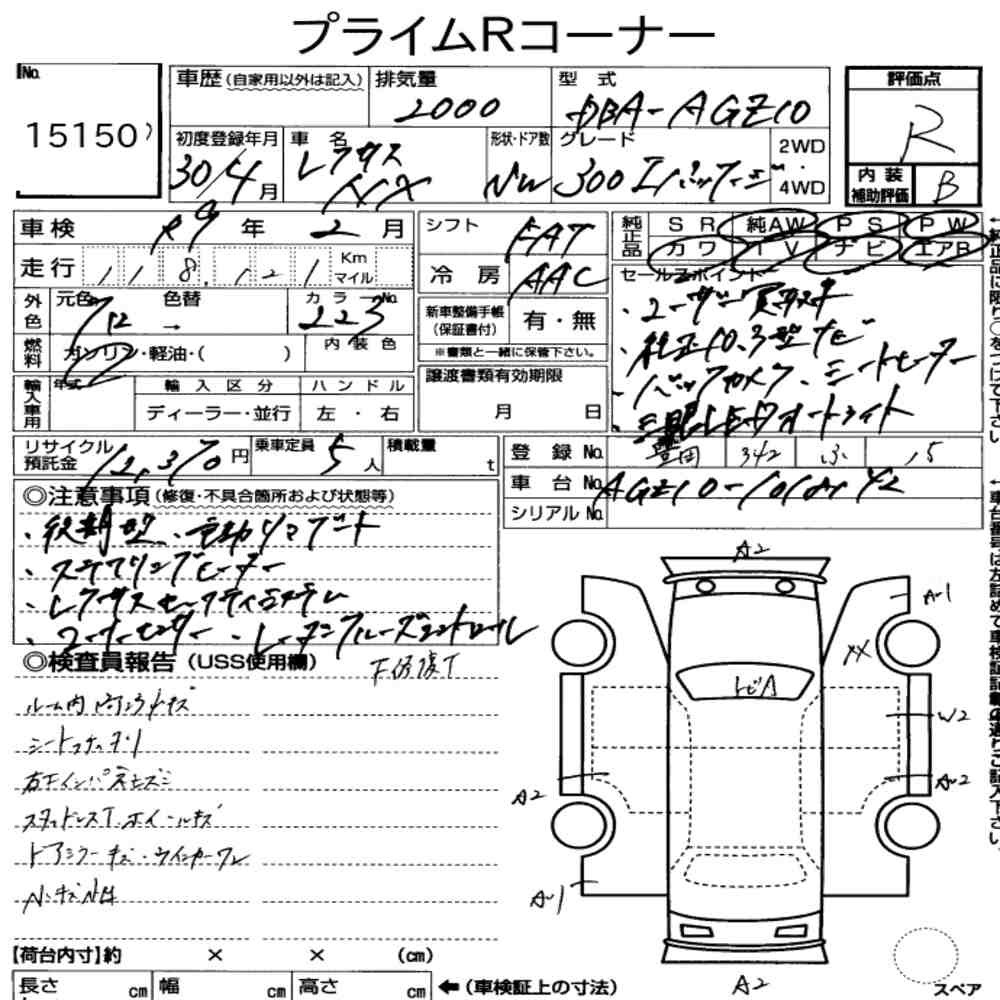 プライムRコーナー
No.
15150
車歴 (自家用以外は記入)
排気量
2000
型 式
DBA-AGZ10
評価点
R
内装
補助評価
B
初度登録年月
30/4月
車 名
レクサス
NX
形状・ドア数
NW
グレード
300 Iパッケージ
2WD
・
4WD
車検 R9年 2月
走行 118,121 Km
マイル
外色
元色
712
色替
→
カラーNo.
223
燃料
ガソリン・軽油・( )
内装色
輸入車用
年式
輸入区分
ハンドル
ディーラー・並行
左・右
シフト
FAT
冷房
AAC
新車整備手帳
(保証書付)
有・無
※書類と一緒に保管下さい。
譲渡書類有効期限
月 日
純正品
SR 純AW PS PW
カワ TV ナビ エアB
セールスポイント
・ユーザー買取車
・純正10.3型ナビ
・バックカメラ、シートヒーター
・三眼LEDオートライト
リサイクル
預託金
12,370円
乗車定員
5人
積載量
t
登録No. 豊田 342 ふ 15
車台No. AGZ10-1018142
シリアルNo.
◎注意事項 (修復・不具合箇所および状態等)
・後期型、電動リアゲート
・ステアリングヒーター
・レクサスセーフティシステム
・コーナーセンサー・レーダークルーズコントロール
◎検査員報告 (USS使用欄)
F修復T
シートコゲ
スタッドレスT.ホイールキズ
ドアミラーキズ・ウインカーワレ
A2
A1
XX
トビA
W2
A2
A2
A1
A2
【荷台内寸】約 × × (cm)
長さ cm
幅 cm
高さ cm
←(車検証上の寸法)
スペア